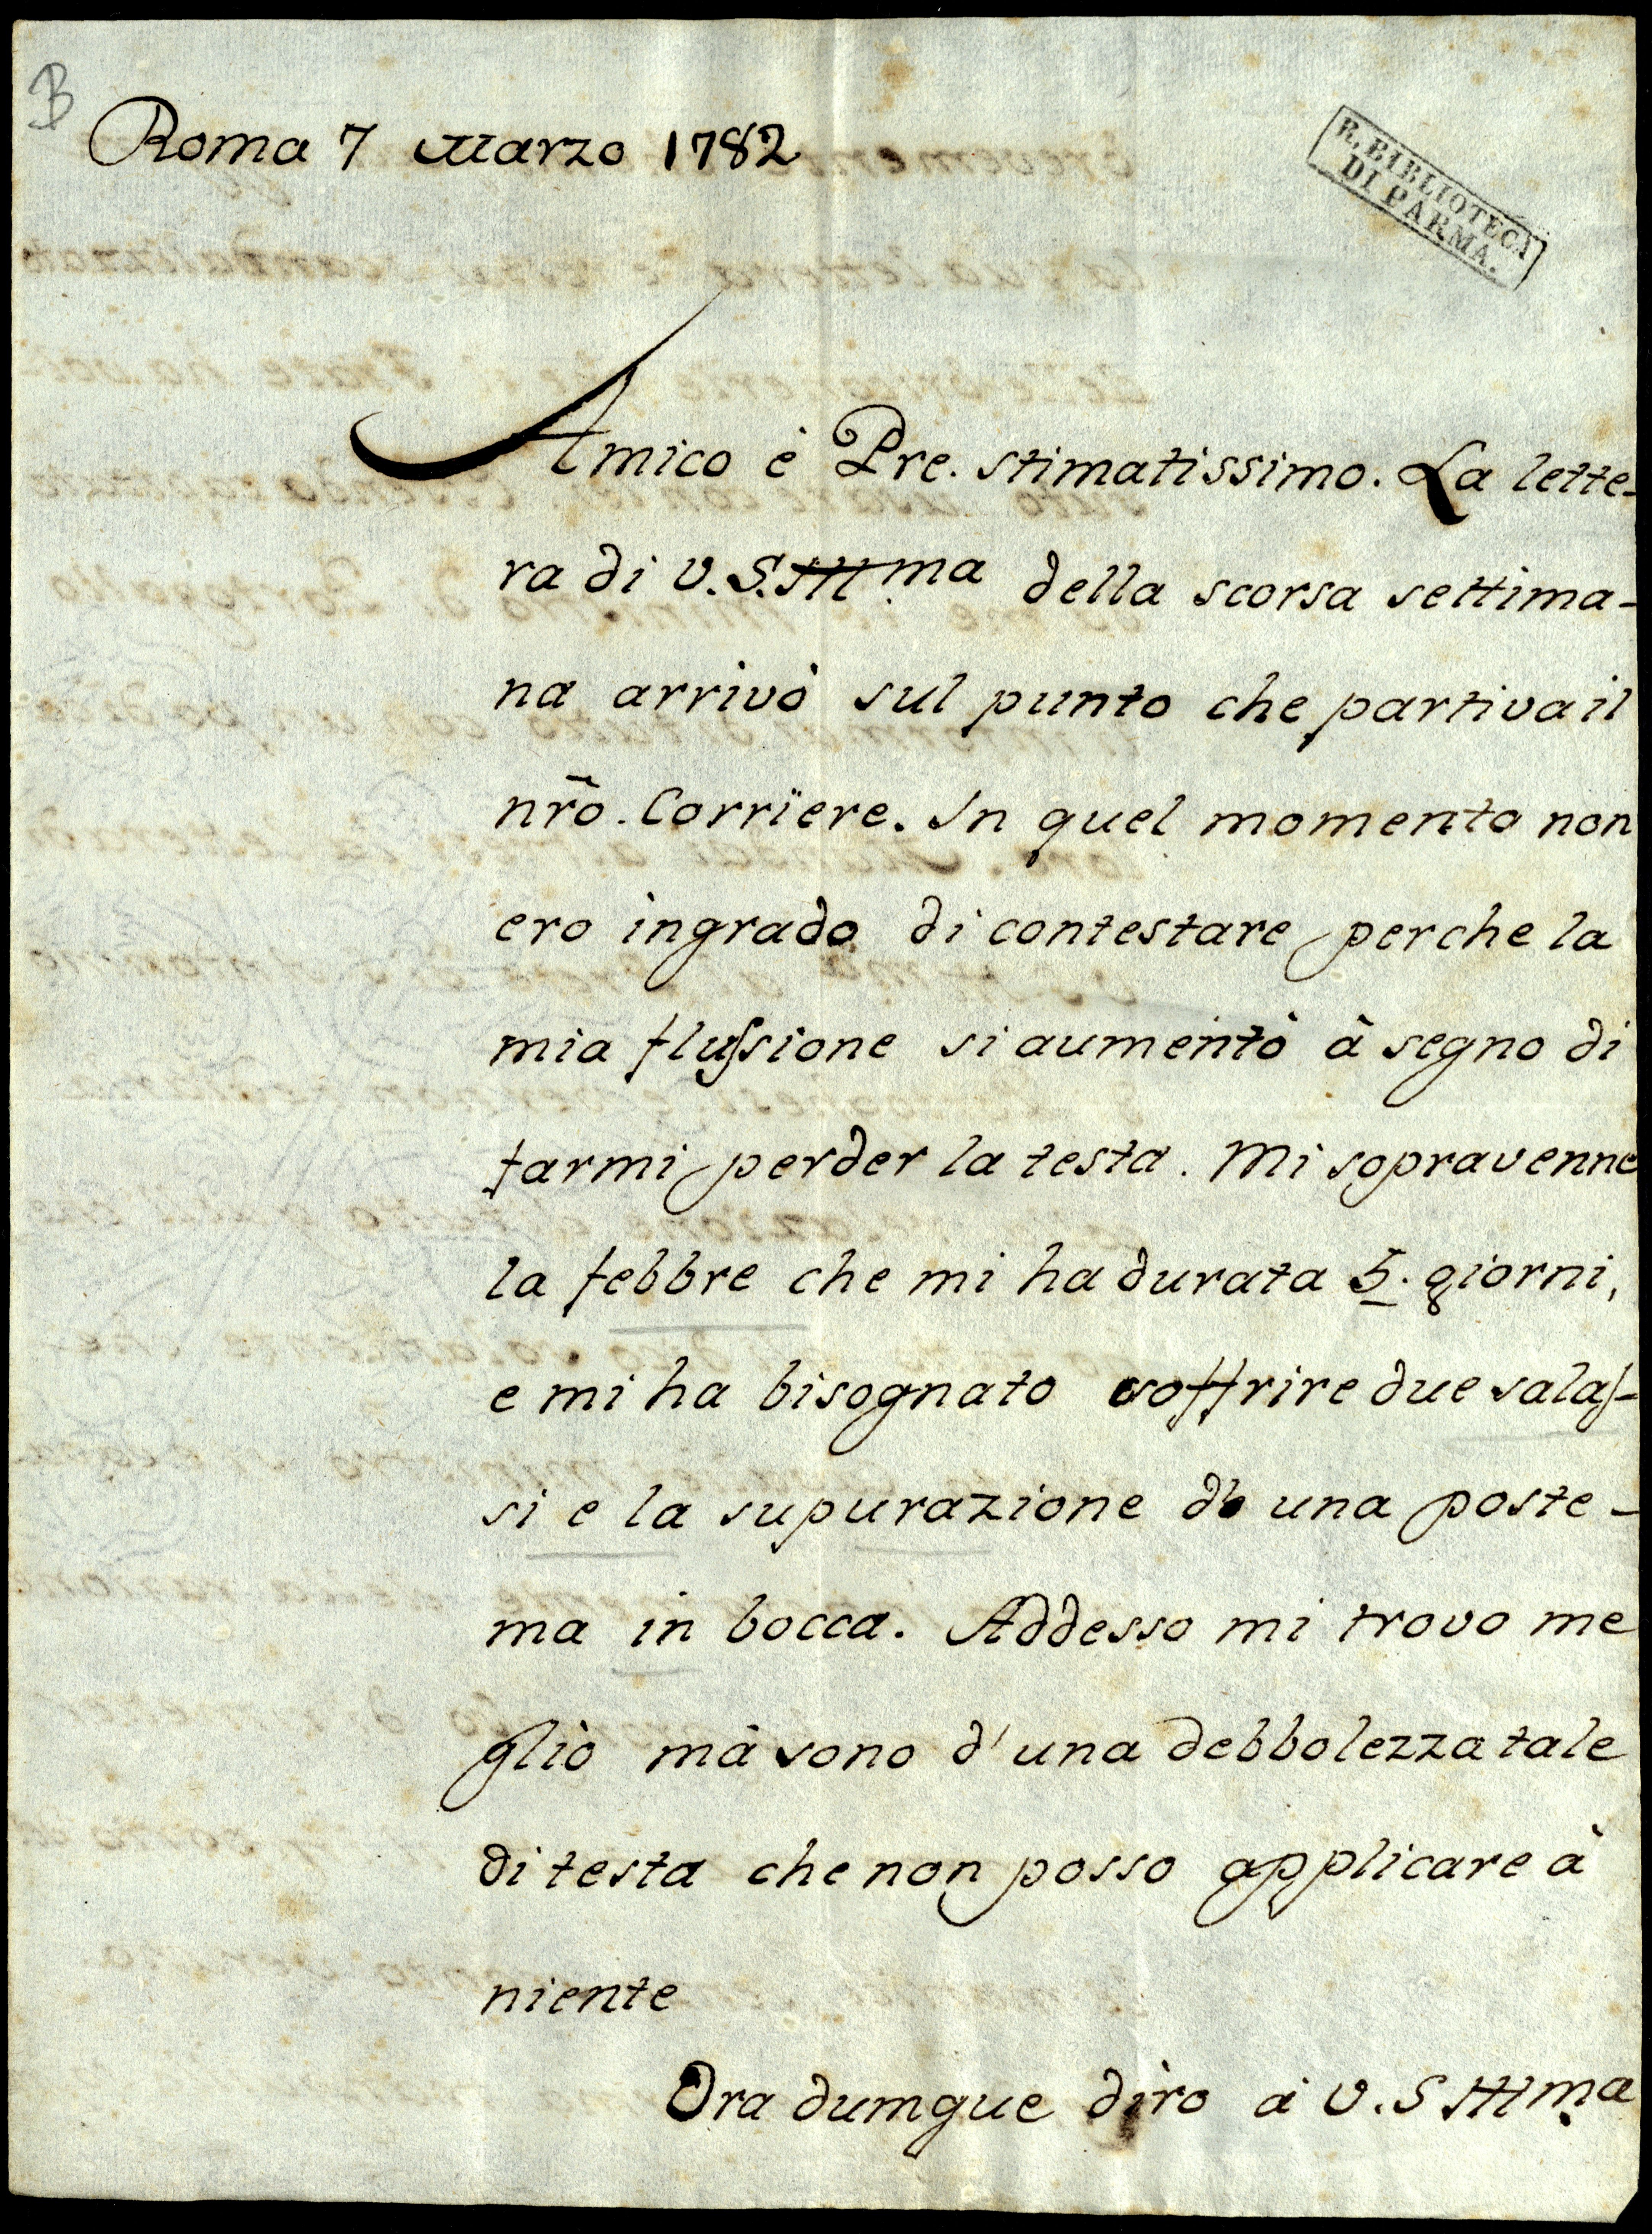 B
Roma 7 Marzo 1782
R. BIBLIOTECA
DI PARMA.
Amico è Pre. stimatissimo. La lette-
ra di V. S. Illma della scorsa settima-
na arrivò sul punto che partiva il
nr̃o. Corrïere. In quel momento non
ero ingrado di contestare perche la
mia flussione si aumentò à segno di
farmi perder la testa. Mi sopravenne
la febbre che mi ha durata 5. giorni,
e mi ha bisognato soffrire due salas-
si e la supurazione di una poste-
ma in bocca. Addesso mi trovo me
gliò mà sono d'una debbolezza tale
di testa che non posso applicare à
niente
Ora dumque dirò à V. S Illma